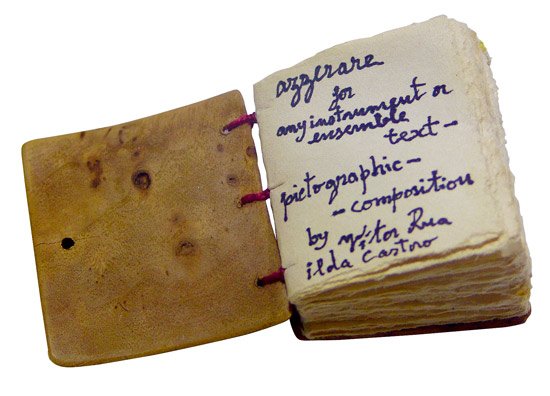 azzerare
for
any instrument or
ensemble
text-
pictographic-
- composition
by Vítor Rua
ilda Castro